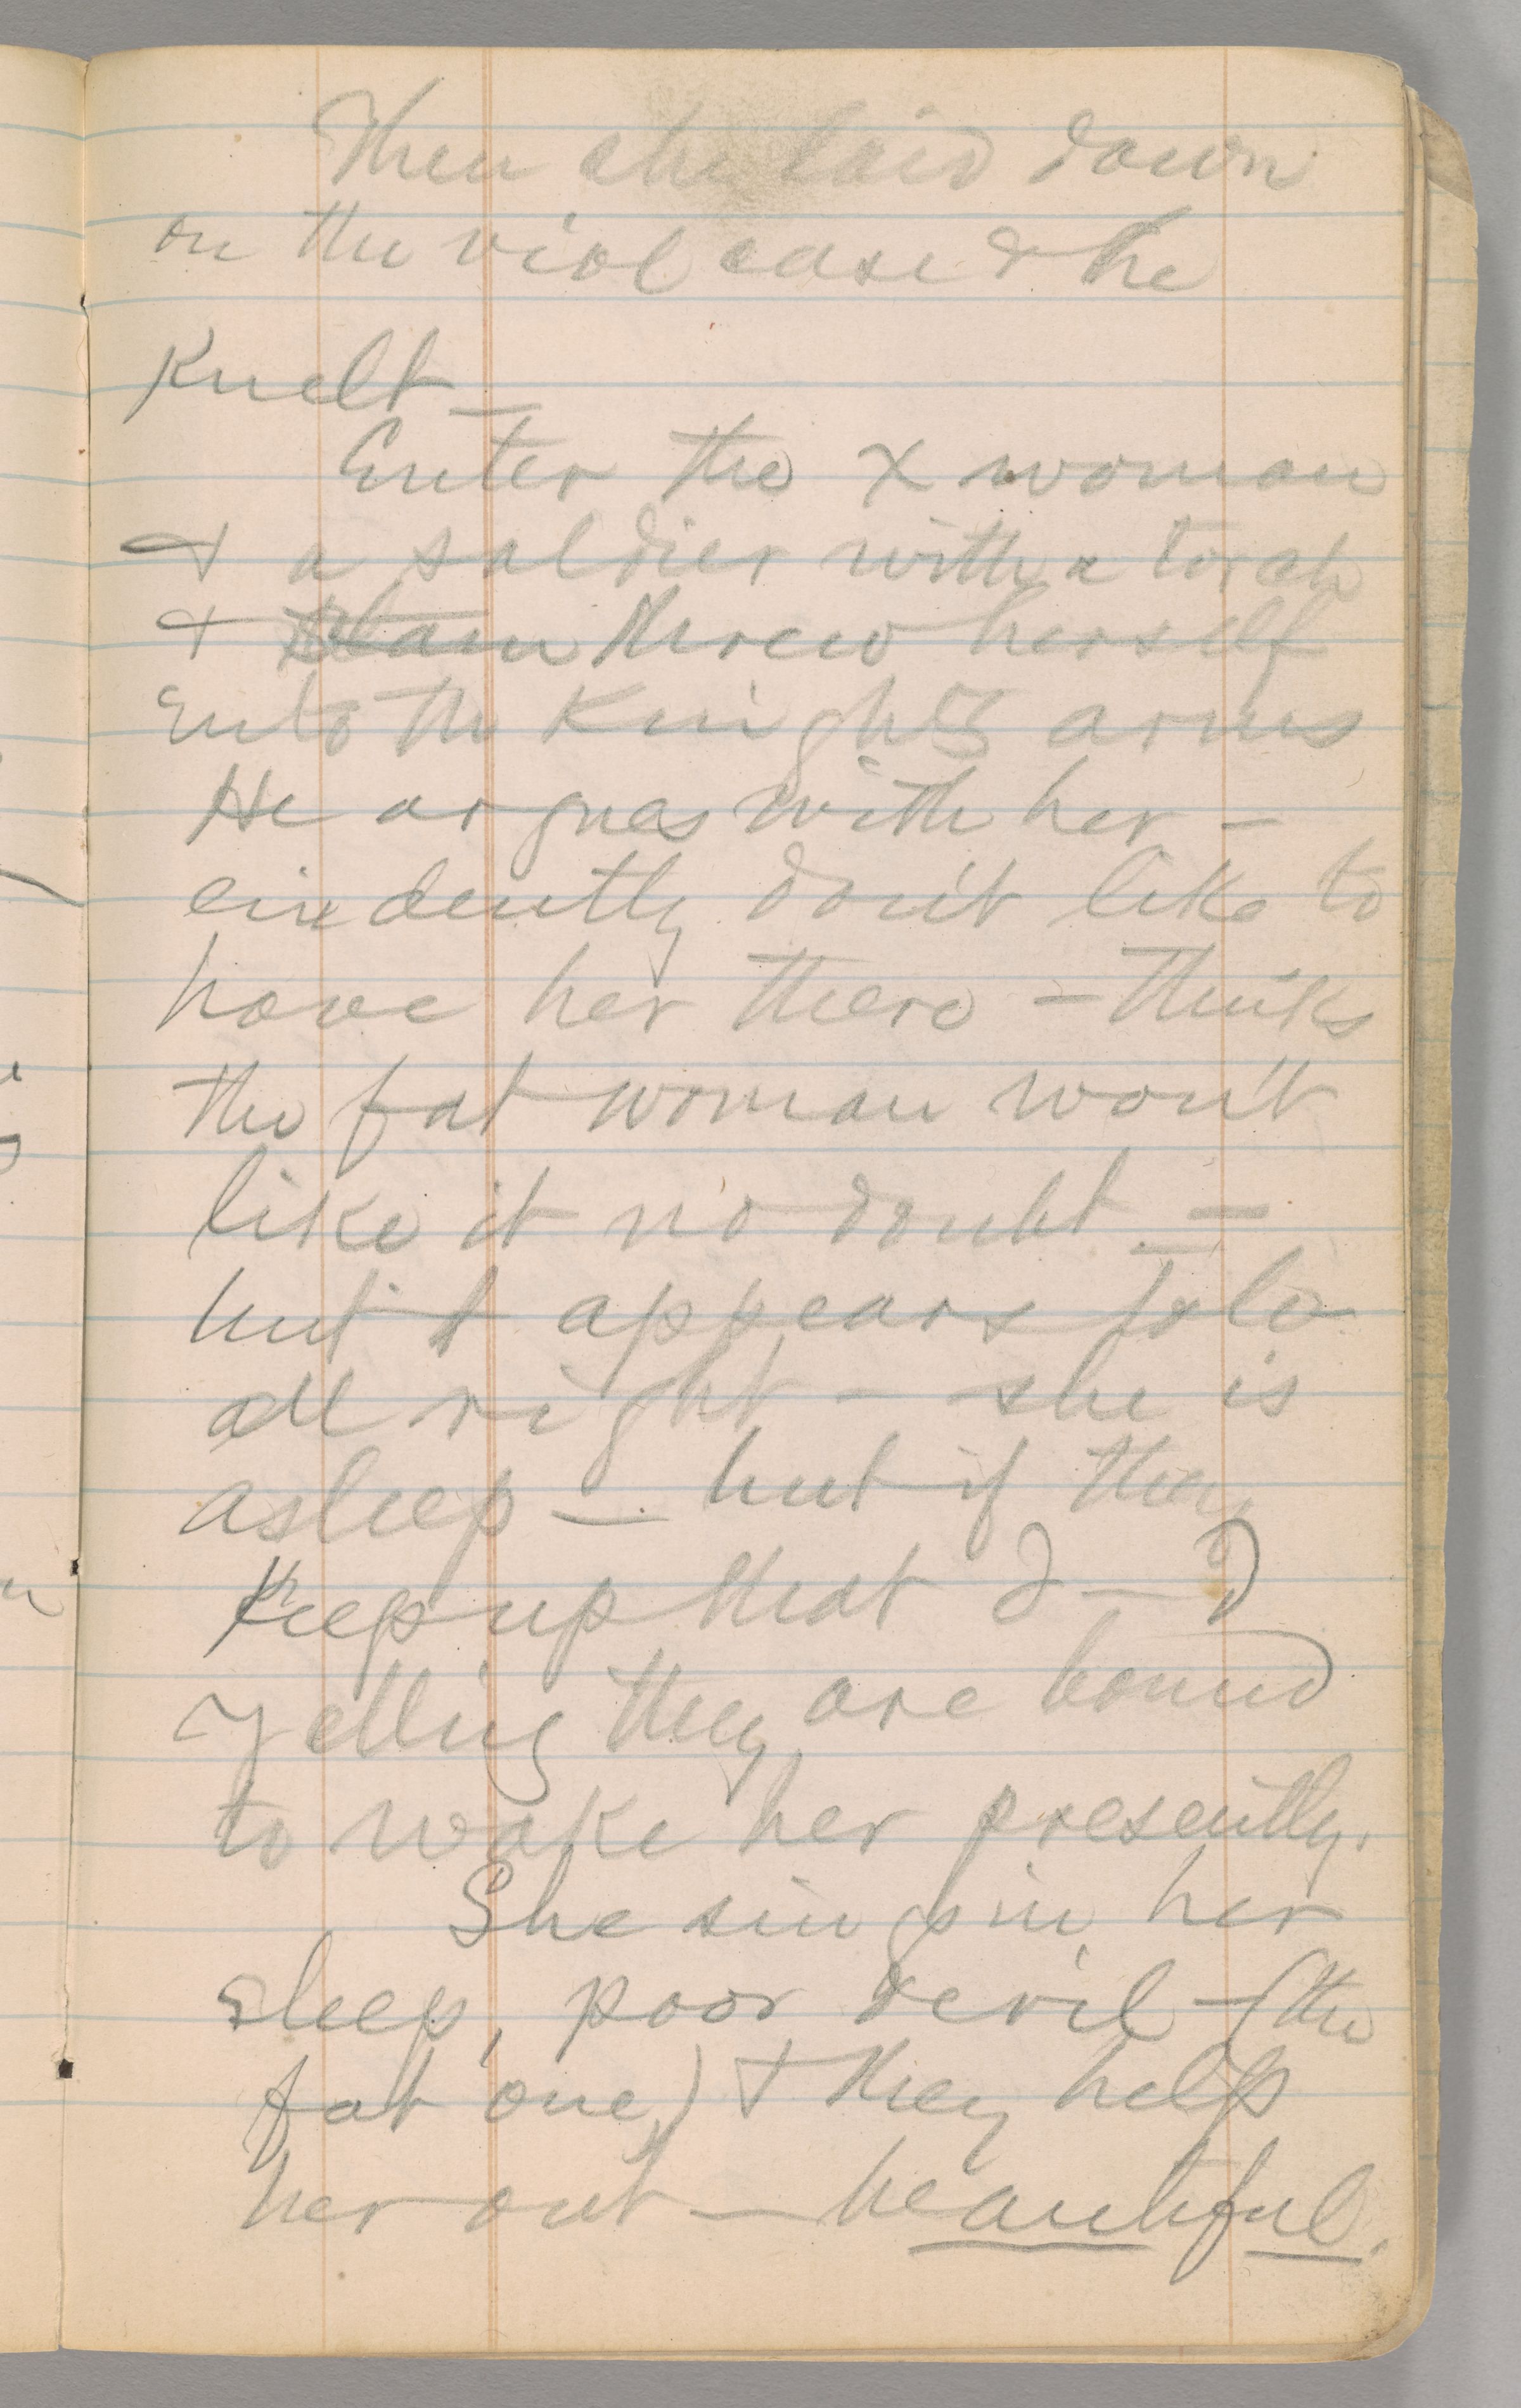 Then she laid down
on the viol case & he
Knelt —
Enter the X woman
& a soldier with a torch
& threw herself
into the Knight's arms
He argues with her —
evidently don't like to
have her there — thinks
the fat woman won't
like it no doubt —
but it appears to be
all right — she is
asleep — but if they
Keep up that d—d
yelling they are bound
to wake her presently.
She sings in her
sleep, poor devil — (the
fat one) & they help
her out — beautiful.